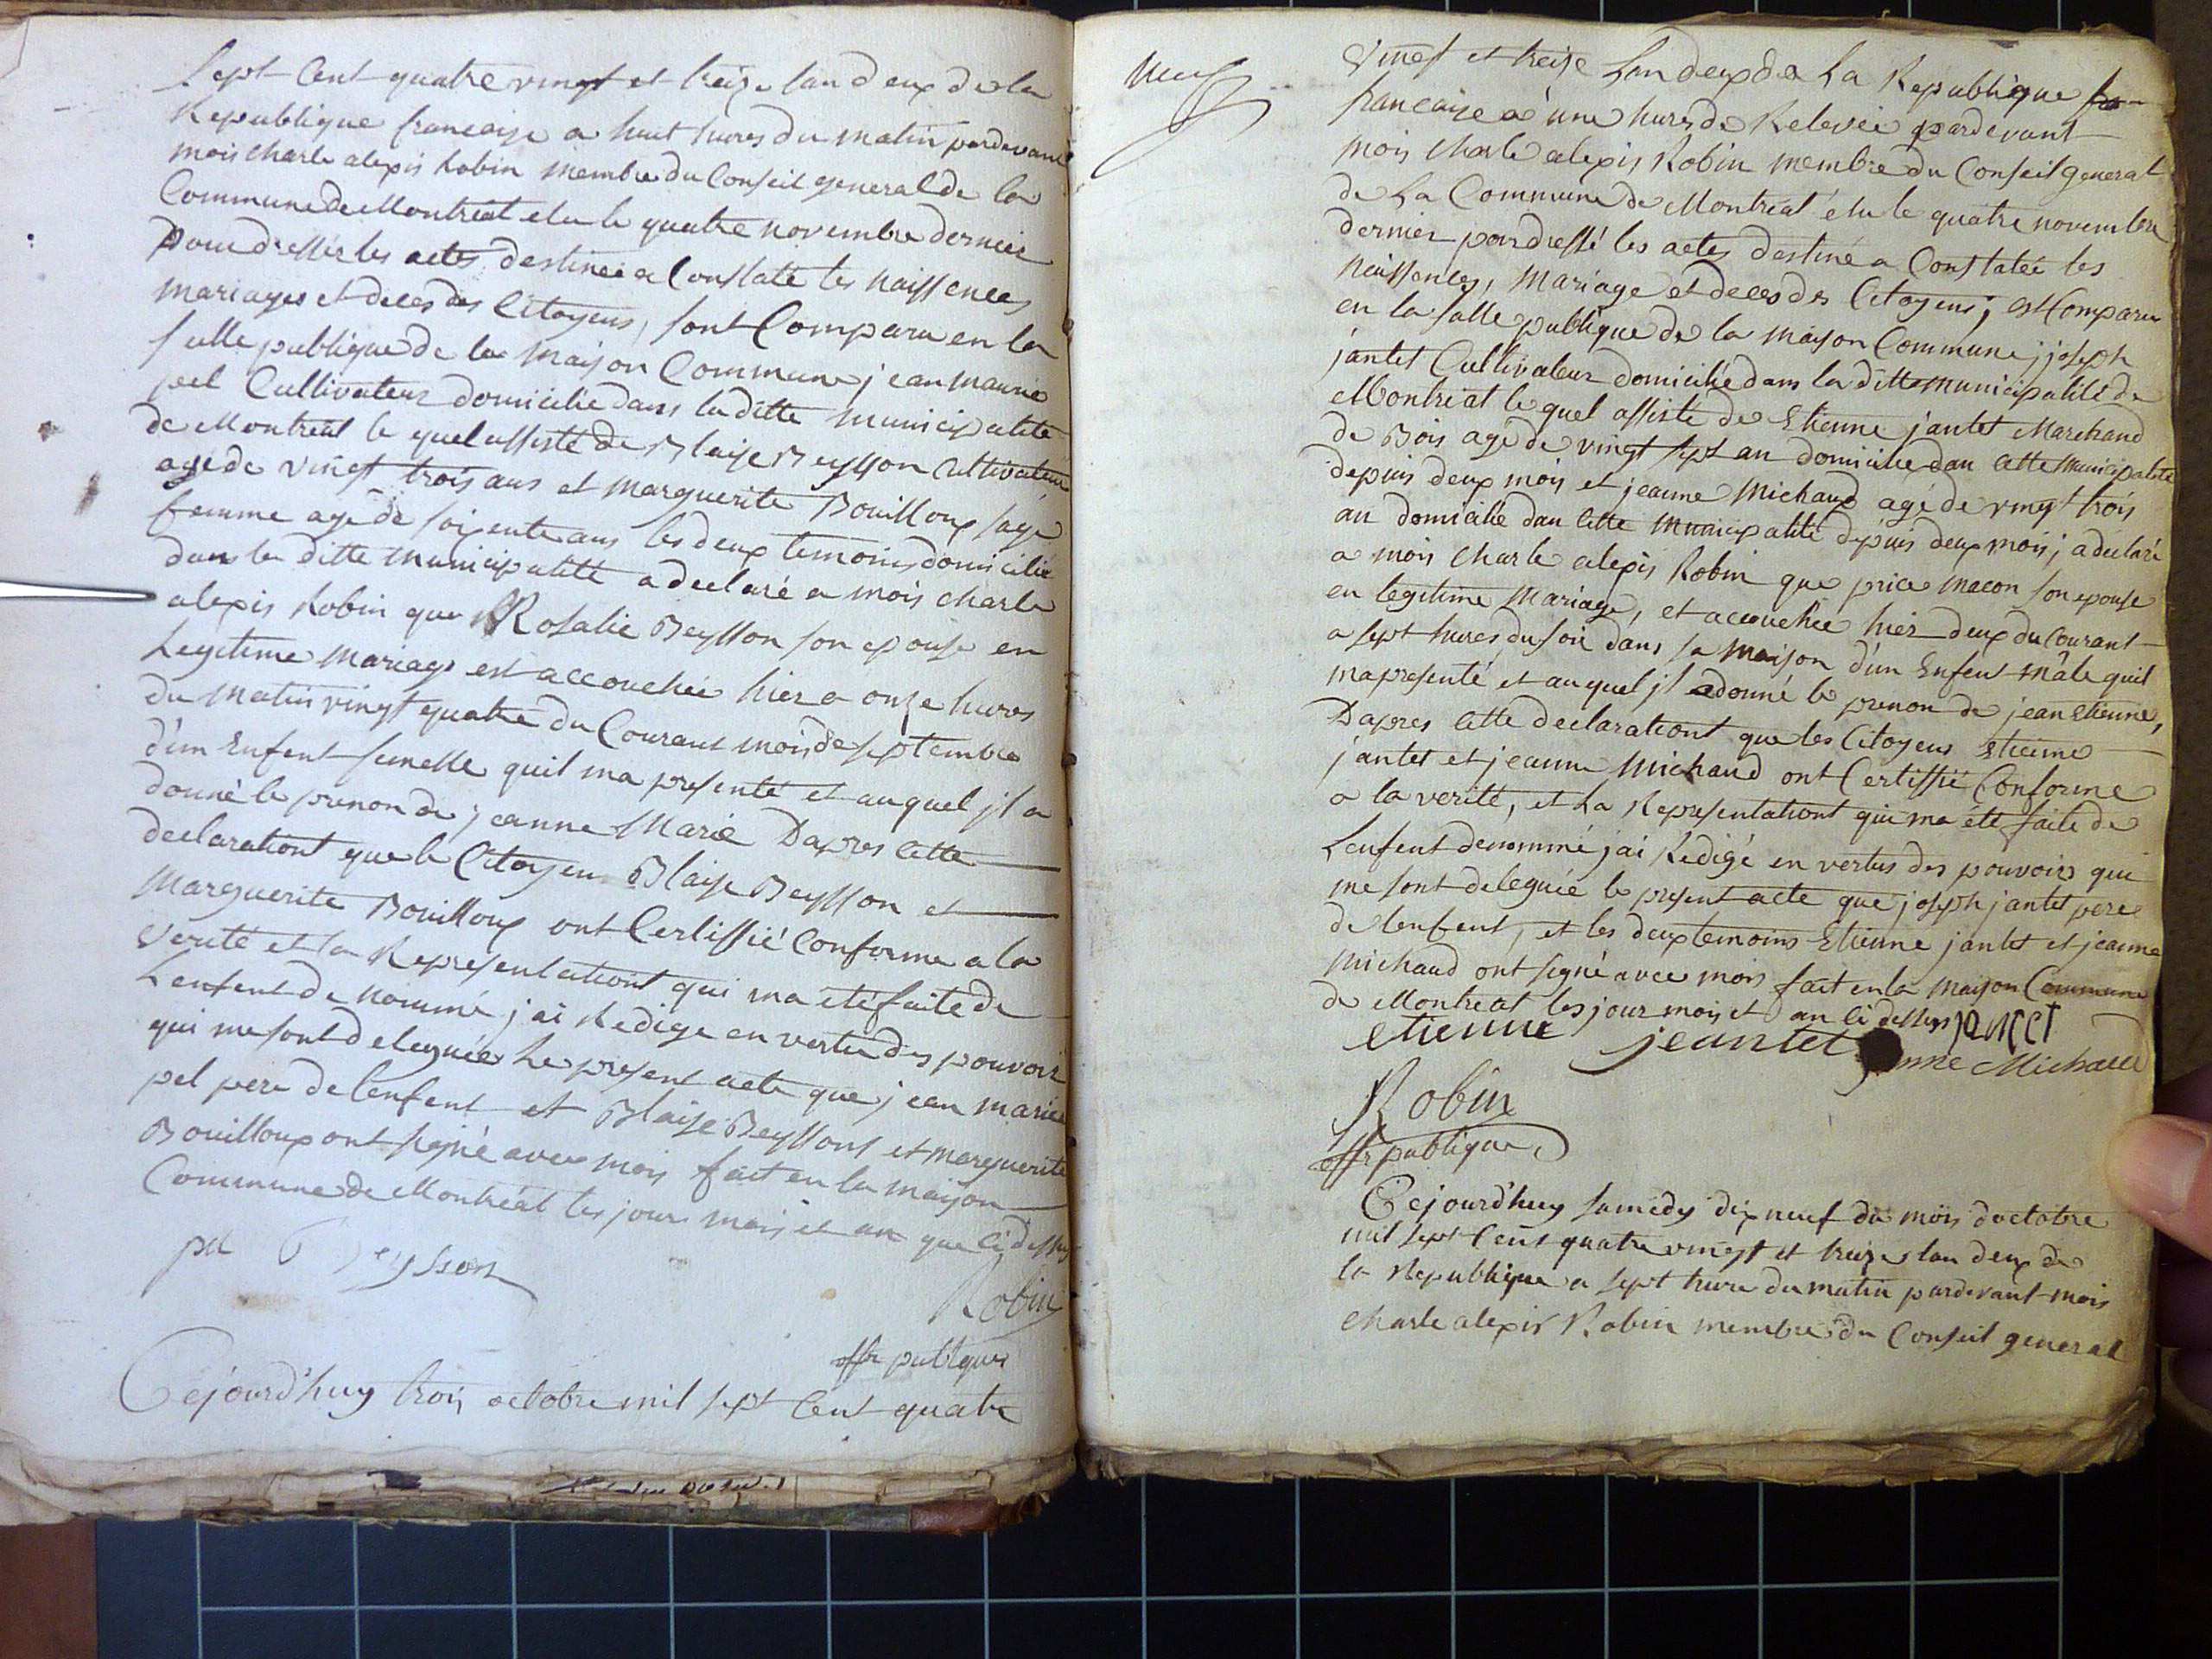 Sept Cent quatre vingt et treize lan deux de la
Republique francaise a huit hures du matin pardevant
mois charle alexis Robin membre du Conseil general de la
Commune de Montreal elu le quatre novembre dernier
Pour dresser les actes destinée a Constaté les naissences
mariages et deces des Citoyens, sont Comparu en la
salle publique de la maison Commune jean marie
pel Cultivateur domicilié dans la ditte municipalité
de Montreal le quel assisté de Blaise Beysson Cultivateur
agé de vingt trois ans et marguerite Bouilloux sage
femme agé de soixente ans les deux temoins domicilié
dans la ditte municipalité a declaré a mois charle
alexis Robin que Rosalie Beysson son epouse en
Legitime mariage est accouchée hier a onze hures
du matin vingt quatre du Courant mois de septembre
d'un Enfent femelle quil ma presenté et auquel jl a
donné le prenon de jeanne Marie Dapres Cette
declarationt que le Citoyen Blaise Beysson et
Marguerite Bouilloux ont Certiffié Conforme a la
verité et la Representationt qui ma été faite de
Lenfent de nommé j'ai Redigé en vertu des pouvoir
qui me sont deleguée Le present acte que jean marie
pel pere de lenfent et Blaise Beyssont et marguerite
Bouilloux ont signé avec mois fait en la maison
Commune de Montréal les jour mois et an que ci dessus
pel Beysson
Robin
offr publique
Cejourd'huy trois octobre mil sept Cent quatre
neuf
vingt et treize Lan deux de La Republique fra
francaise a une hures de Relevée pardevant
mois charle alexis Robin membre du Conseil general
de La Commune de Montréal élu le quatre novembre
dernier pour dressé les actes destiné a Constatée les
naissences, mariage et deces des Citoyens; est Comparu
en la salle publique de la maison Commune; joseph
jantet Cultivateur domicilié dans la ditte municipalité de
Montréal le quel assisté de Etienne jantet Marchand
de Bois agé de vingt sept an domicilié dan Cette municipalité
depuis deux mois et jeanne Michaud agé de vingt trois
an domicilié dan Cette municipalité dépuis deux mois; a declaré
a mois charle alexis Robin que price macon son epouse
en legitime mariage, et accouchée hier deux du Courant
a sept hures du soir dans sa maison d'un Enfent mâle quil
ma presenté et auquel jl a donné le prenon de jean Etienne,
Dapres Cette declarationt que les Citoyens Etienne
jantet et jeanne Michaud ont Certiffié Conforme
a la verité, et La Representationt qui ma été faite de
Lenfent denommé j'ai Redigé en vertus des pouvoirs qui
me sont deleguée le present acte que joseph jantet pere
de lenfent, et les deux temoins Etienne jantet et jeanne
michaud ont signé avec mois fait en la maison Commune
de Montréal les jour mois et an ci dessus jantet
etienne jeantet jeanne Michaud
Robin
offr publique
Cejourd'huy samedy dix neuf du mois doctobre
mil sept Cent quatre vingt et treize lan deux de
la Republique a sept hure du matin pardevant mois
Charle alexis Robin membre du Conseil general